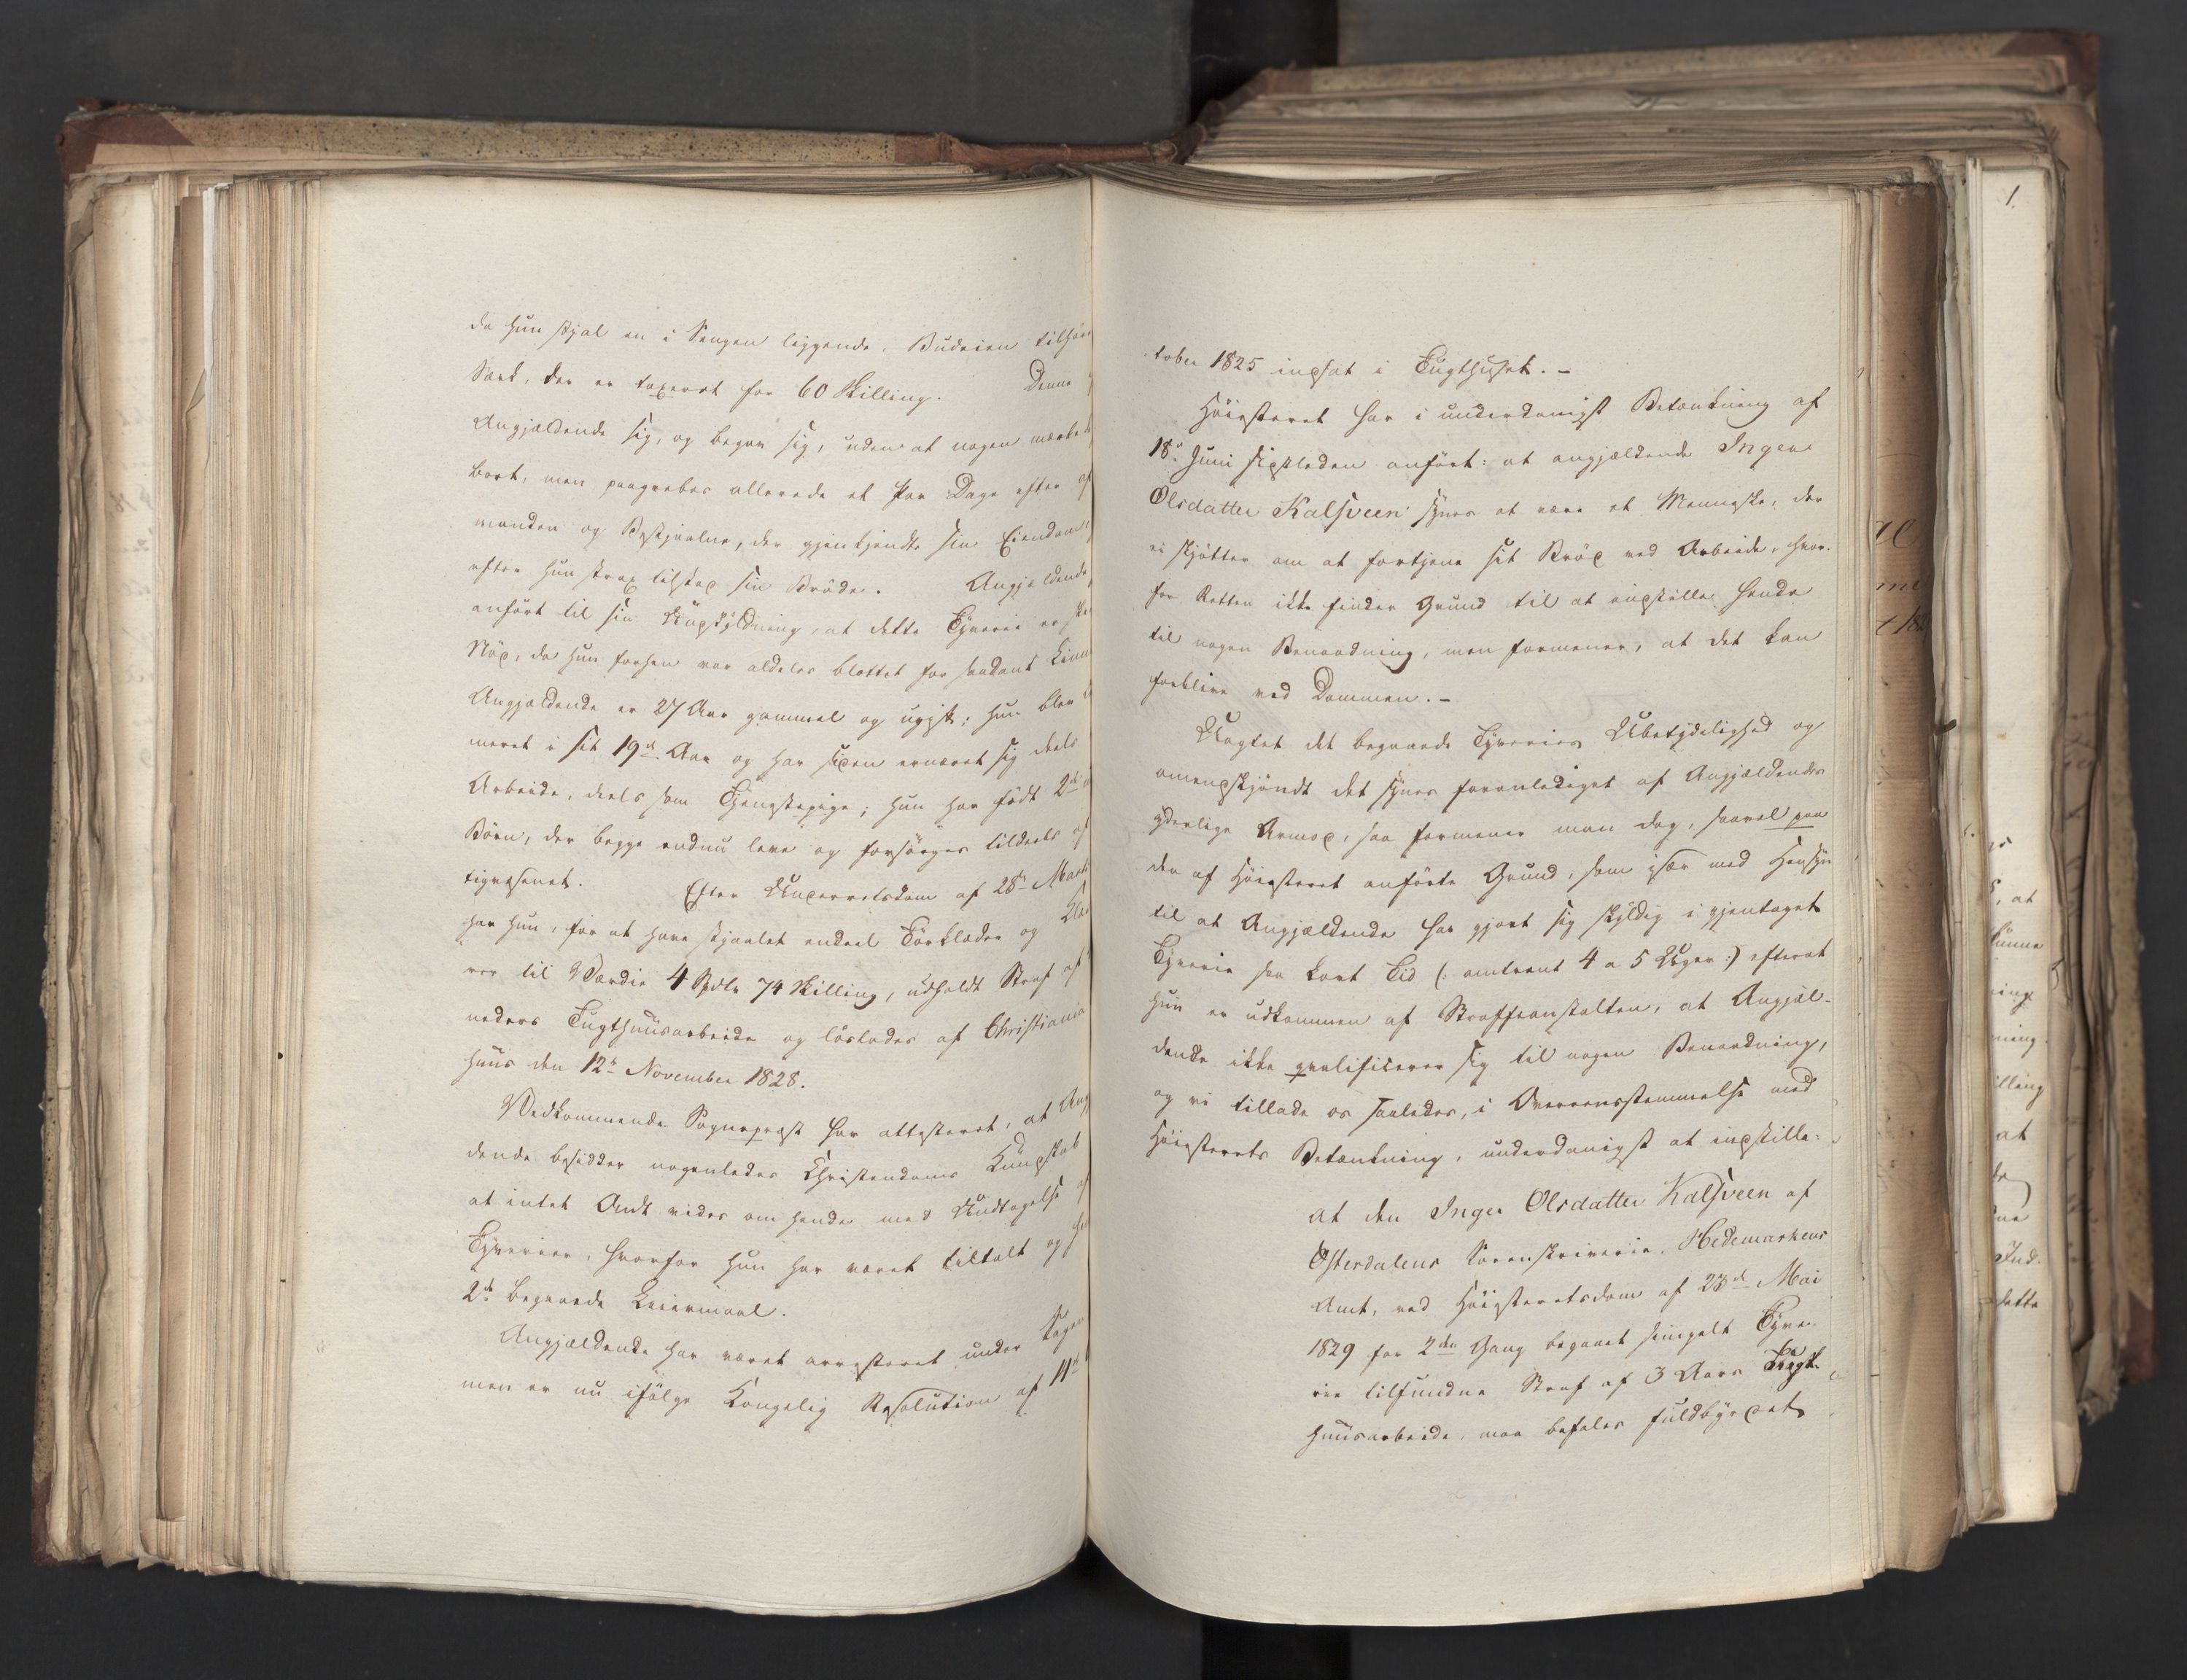 da hun stjal en i Sengen liggende, Budeien tilhør
Særk, der er taxeret for 60 Skilling. Denne
Angjældende sig, og begav sig, uden at nogen mærkede
bort, men paagrebes allerede et Par Dage efter af
manden og Bestjaalne, der gjenkjendte sin Eiendom,
efter hun strax tilstod sin Brøde. Angjældende
anført til sin Undskyldning, at dette Tyverie er skee
Nød, da hun forhen var aldeles blottet for saadant Linn
Angjældende er 27 Aar gammel og ugift; hun blev
meret i sit 19de Aar og har siden ernæret sig deels
Arbeide, deels som Tjenestepige; hun har født 2de
Børn, der begge endnu leve og forsørges tildeels af
tigvæsenet. Efter Underretsdom af 28de Marts
har hun, for at have stjaalet endeel Törklæder og Klæ
var til Værdie 4 Spdlr 74 Skilling, udholdt Straf af
neders Tugthuusarbeide og løslodes af Christiania
huus den 12te November 1828.
Vedkommende Sognepræst har attesteret, at Ang
dende besidder nogenledes Christendoms Kundskab
at intet Ondt vides om hende med Undtagelse af
Tyverier, hvorfor hun har været tiltalt og
2de begaaede Leiermaal.
Angjældende har været arresteret under Sagen
men er nu ifølge Kongelig Resolution af 11te
tober 1825 indsat i Tugthuset. -
Høiesteret har i underdanigst Betænkning af
18de Juni sidstleden anført: at angjældende Inger
Olsdatter Kalsveen synes at være et Menneske, der
ei skjøtter om at fortjene sit Brød ved Arbeide, hvor-
for Retten ikke finder Grund til at indstille hende
til nogen Benaadning, men formener, at det kan
forblive ved Dommen. -
Uagtet det begaaede Tyveries Ubetydelighed og
omendskjøndt det synes foranlediget af Angjældendes
yderlige Armod, saa formener man dog, saavel paa
den af Høiesteret anførte Grund, som især med Hensyn
til at Angjældende har gjort sig skyldig i gjentaget
Tyverie saa kort Tid (: omtrent 4 a 5 Uger :) efterat
hun er udkommen af Straffeanstalten, at Angjæl-
dende ikke qvalificerer sig til nogen Benaadning,
og vi tillade os saaledes, i Overeensstemmelse med
Høiesterets Betænkning, underdanigst at indstille:
at den Inger Olsdatter Kalsveen af
Østerdalens Sorenskriverie, Hedemarkens
Amt, ved Høiesteretsdom af 23de Mai
1829 for 2den Gang begaaet simpelt Tyve-
rie tilfundne Straf af 3 Aars Tugt-
huusarbeide, maa befales fuldbyrdet
1.